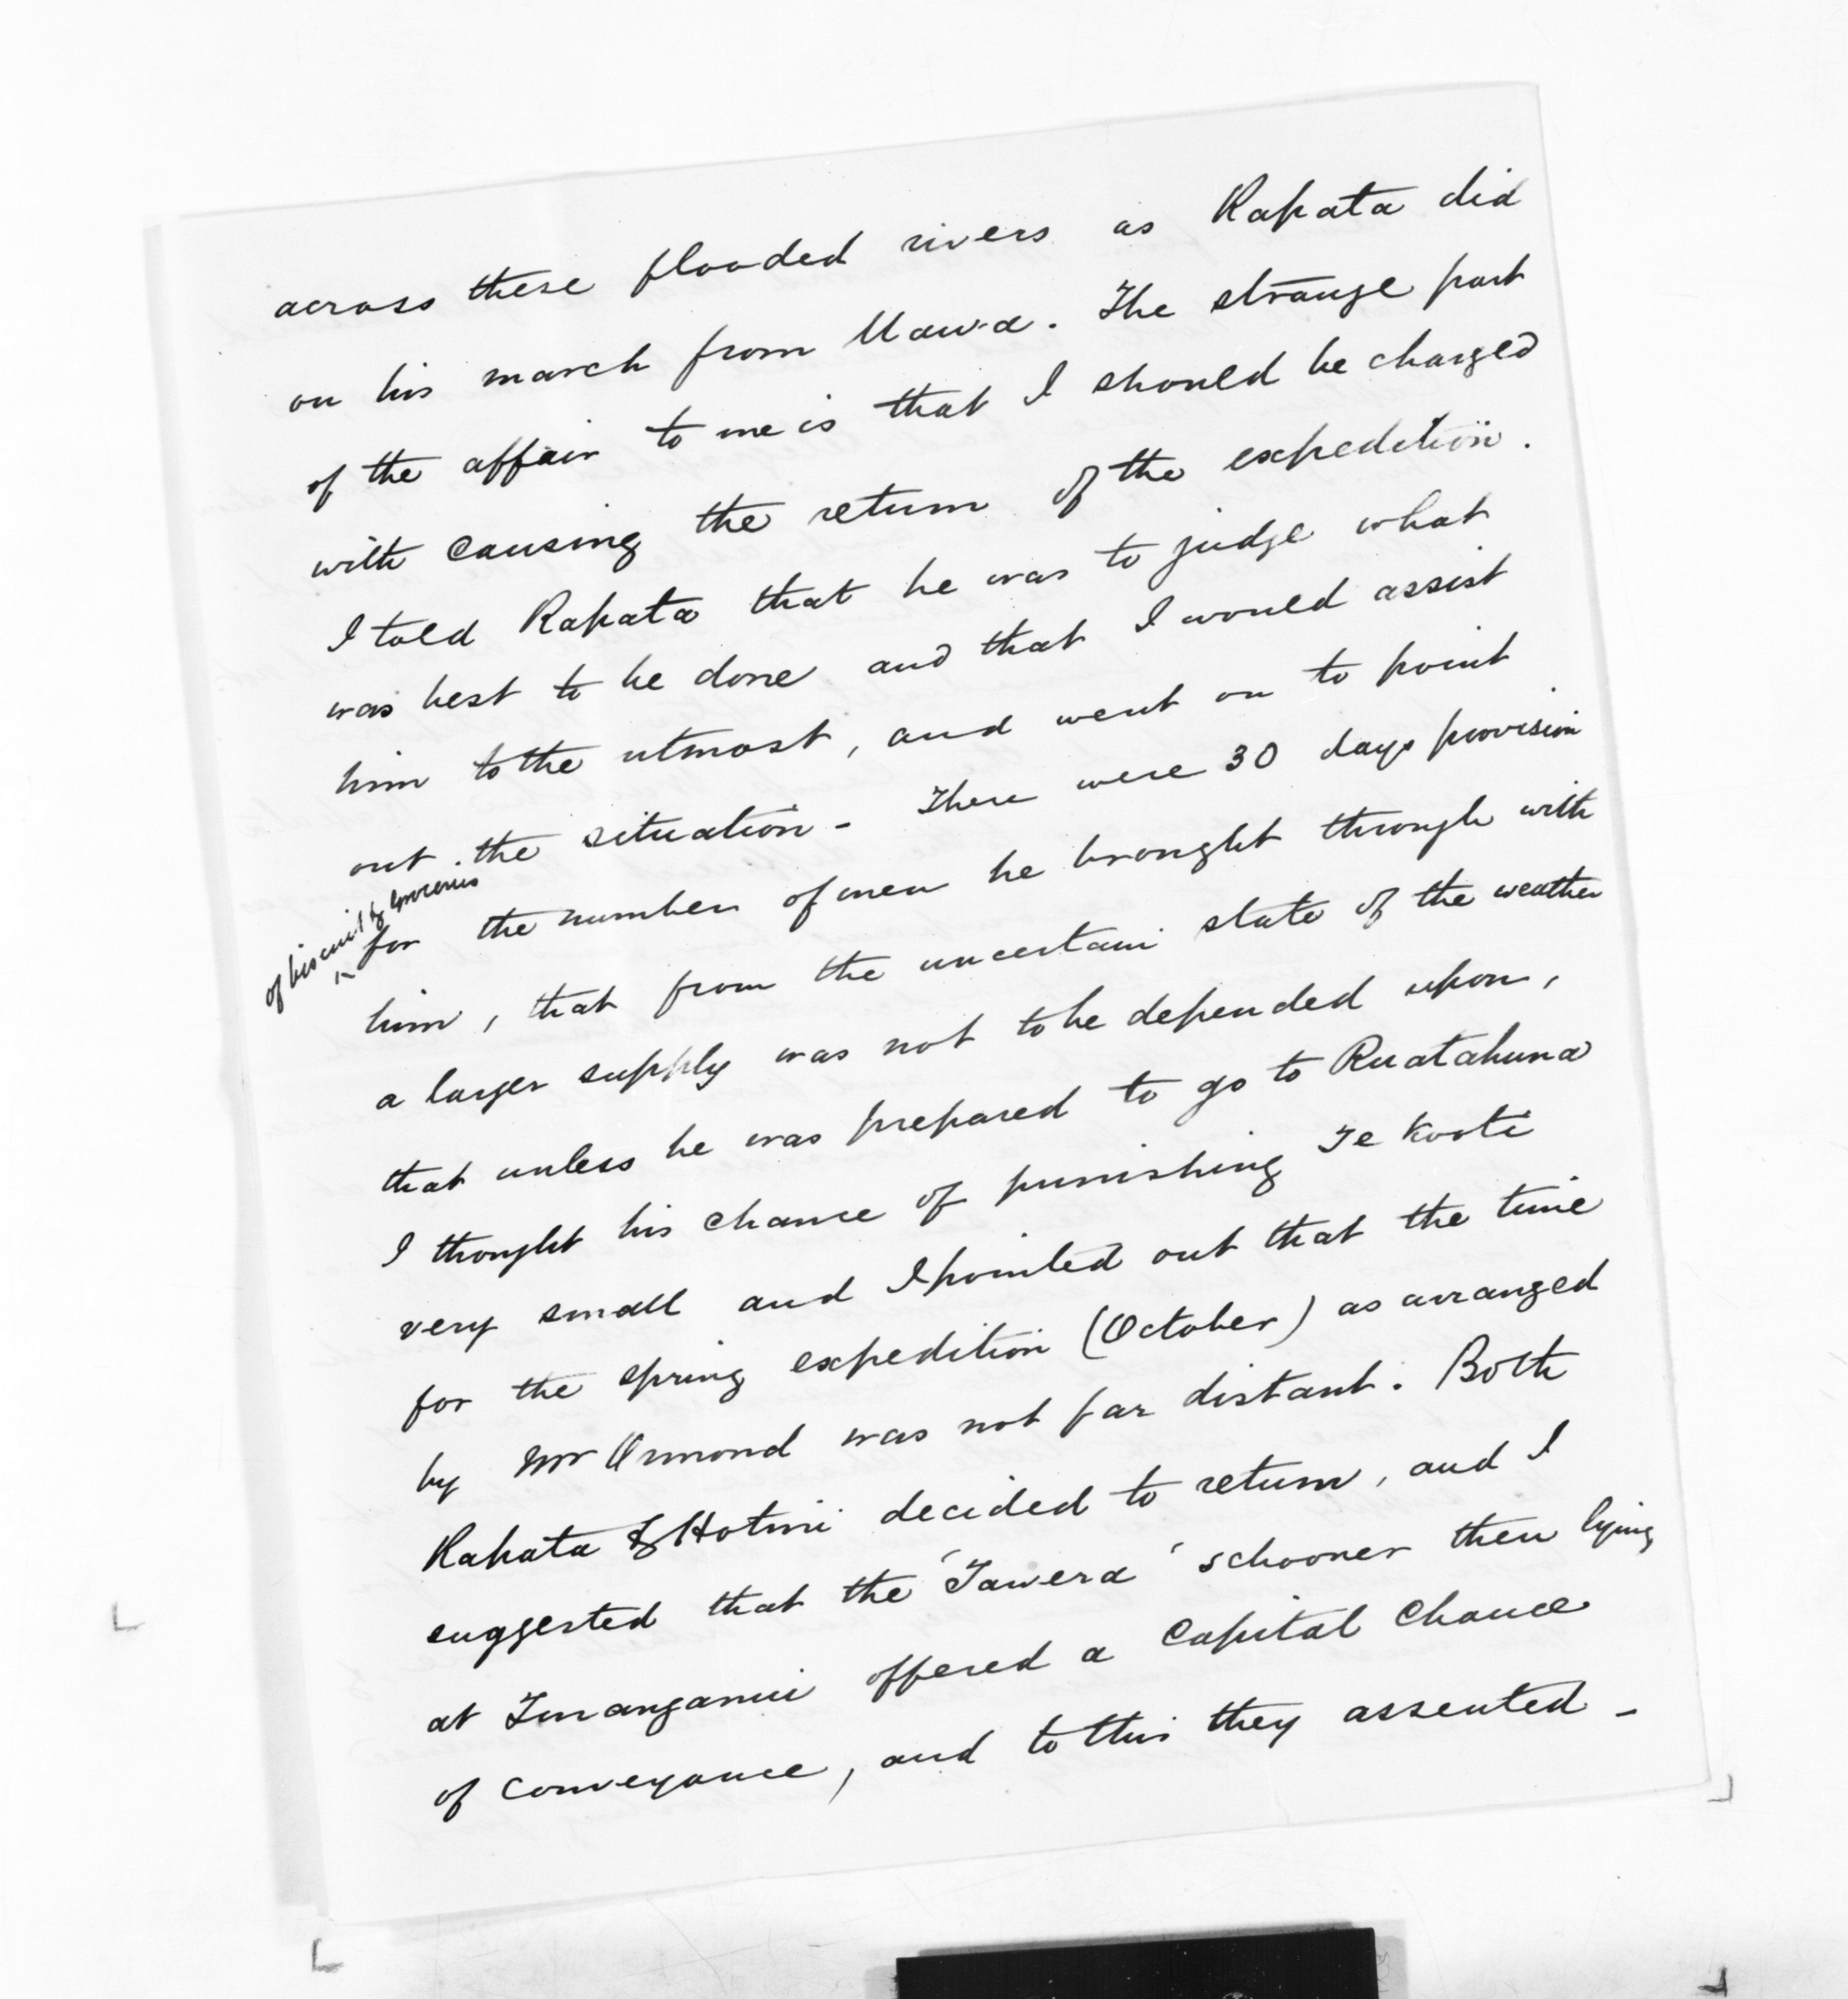 across these flooded rivers as Rapata did
on his march from Uawa. The strange part
of the affair to me is that I should be charged
with causing the return of the expedition.
I told Rapata that he was to judge what
was best to be done and that I would assist
him to the utmost, and went on to point
out the situation - There were 30 days provision
of biscuit & groceries
for the number of men he brought through with
him, that from the uncertain state of the weather
a larger supply was not to be depended upon,
that unless he was prepared to go to Ruatahuna
I thought his chance of punishing Te Kooti
very small and I pointed out that the time
for the spring expedition (October) as arranged
by Mr Ormond was not far distant. Both
Rapata & Hotini decided to return, and I
suggested that the 'Tawera' schooner then lying
at Turanganui offered a capital chance
of conveyance, and to this they assented -